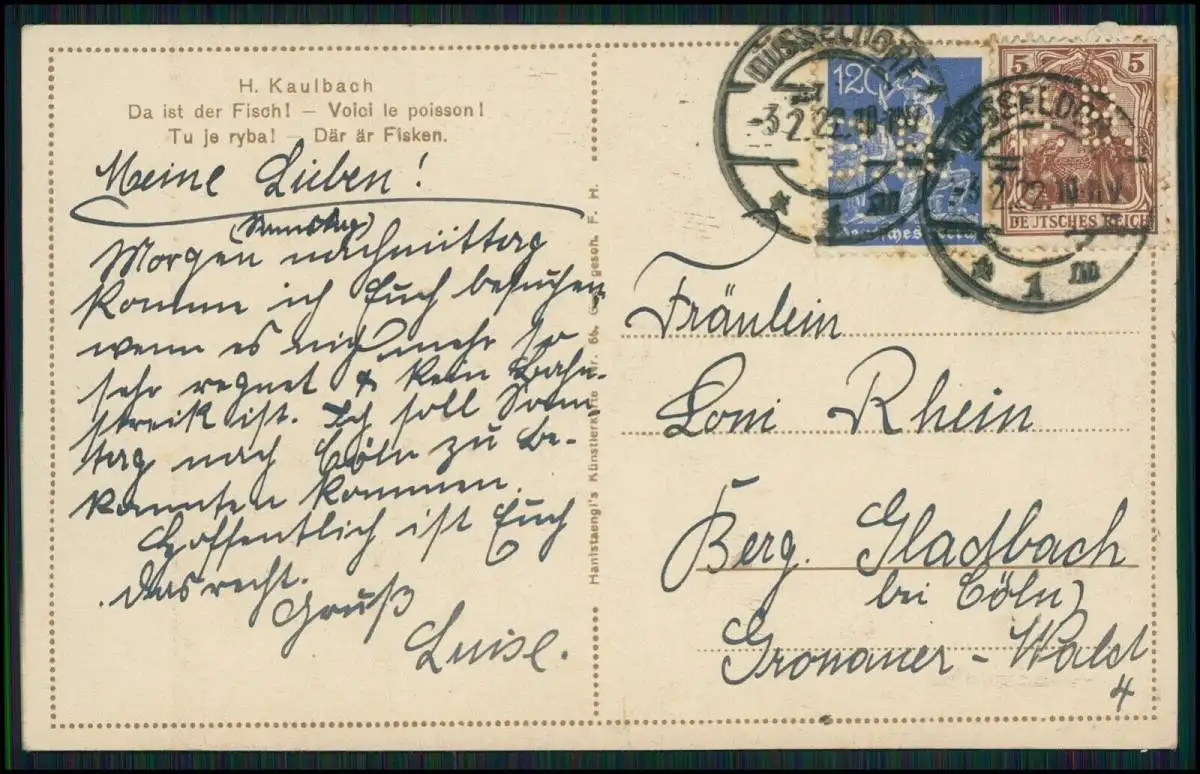 H. Kaulbach
Da ist der Fisch! – Voici le poisson!
Tu je ryba! – Där är Fisken.
Meine Lieben!
(Samstag)
Morgen nachmittag
komme ich Euch besuchen
wenn es nicht mehr so
sehr regnet & kein Bahn-
streik ist. Ich soll Sonn
tag nach Cöln zu Be-
kannten kommen.
Hoffentlich ist Euch
das recht.
Gruß
Luise.
Hanfstaengl's Künstlerkarte Nr. 66. gesch. F. H.
DÜSSELDORF
-3.2.22.10-11V.
* 1 m
120
Deutsches Reich
DÜSSELDORF
-3.2.22.10-11V.
* 1 m
5 5
DEUTSCHES REICH
Fräulein
Loni Rhein
Berg. Gladbach
bei Cöln)
Gronauer-Wald
4